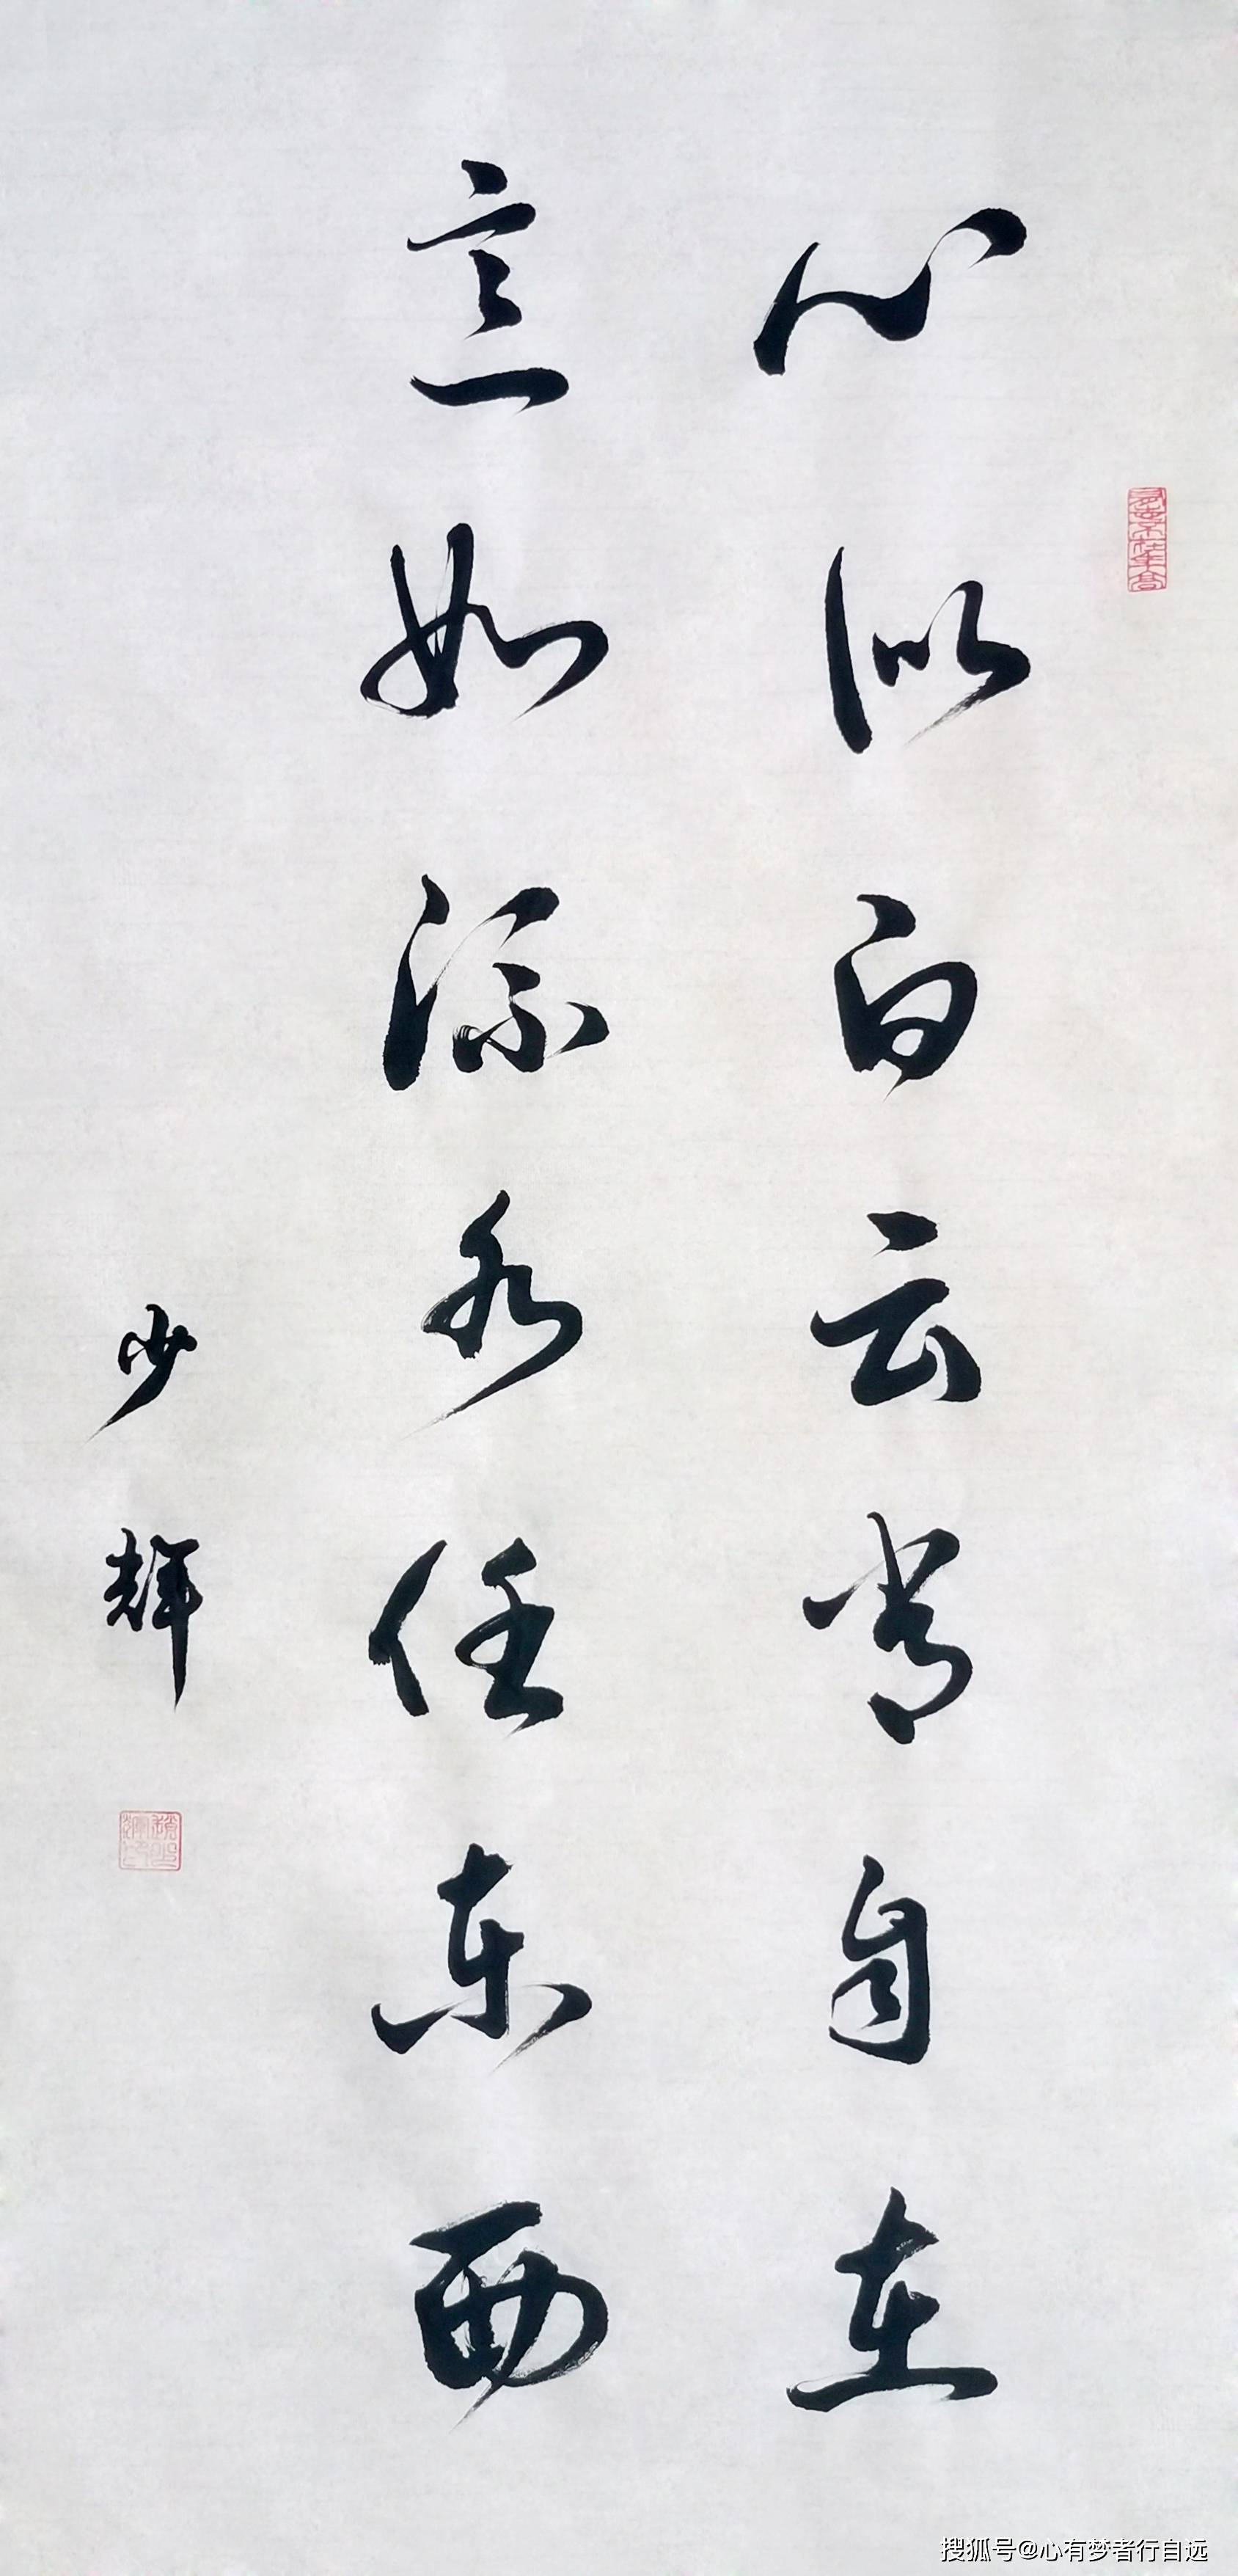 心似白云常自在
意如流水任东西
少辉
搜狐号@心有梦者行自远